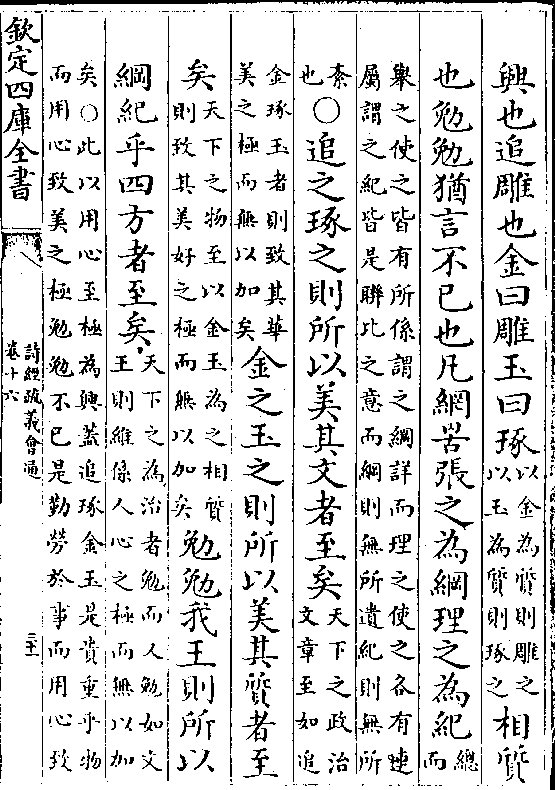 興也追雕也金曰雕玉曰琢以金為質則雕之以玉為質則琢之相質
也勉勉猶言不已也凡網罟張之為綱理之為紀總而
舉之使之皆有所係謂之綱詳而理之使之各有連
屬謂之紀皆是聯比之意而綱則無所遺紀則無所
紊也○追之琢之則所以美其文者至矣天下之政治文章至如追
金琢玉者則致其華美之極而無以加矣金之玉之則所以美其質者至
矣天下之物至以金玉為之相質則致其美好之極而無以加矣勉勉我王則所以
綱紀乎四方者至矣天下之為治者勉而又勉如文王則維係人心之極而無以加
矣○此以用心至極為興蓋追琢金玉是貴重乎物
而用心致美之極勉勉不已是勤勞於事而用心致
欽定四庫全書
詩經疏義會通
卷十六